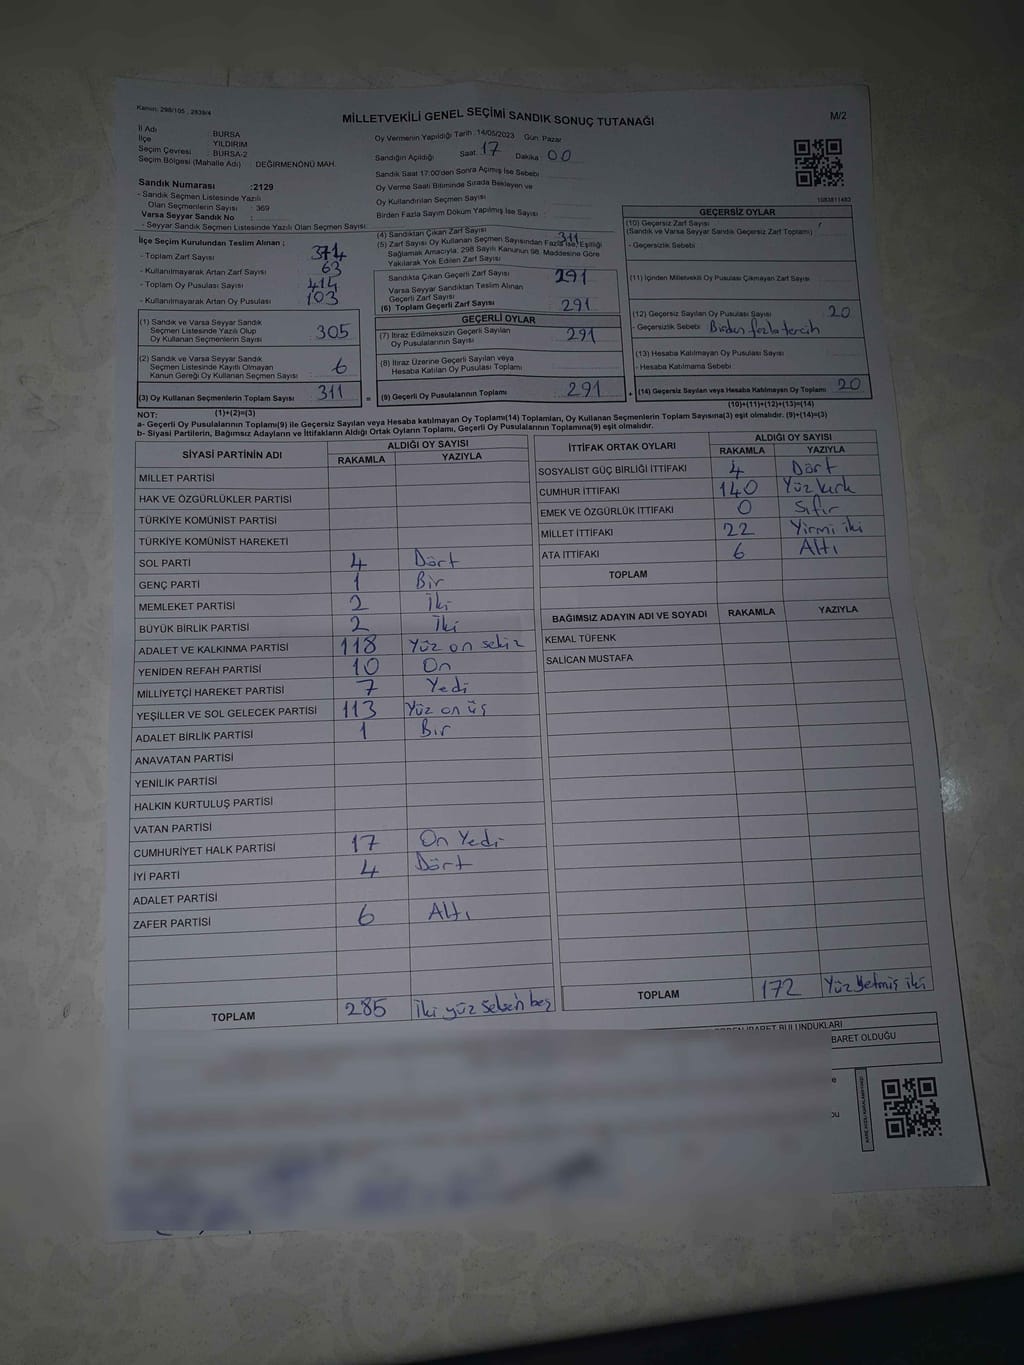 Kanun: 298/105 ; 2839/4
MİLLETVEKİLİ GENEL SEÇİMİ SANDIK SONUÇ TUTANAĞI
M/2
İl Adı : BURSA
İlçe : YILDIRIM
Seçim Çevresi : BURSA-2
Seçim Bölgesi (Mahalle Adı) : DEĞİRMENÖNÜ MAH.
Sandık Numarası :2129
- Sandık Seçmen Listesinde Yazılı
Olan Seçmenlerin Sayısı : 369
Varsa Seyyar Sandık No :
- Seyyar Sandık Seçmen Listesinde Yazılı Olan Seçmen Sayısı:
Oy Vermenin Yapıldığı Tarih : 14/05/2023 Gün: Pazar
Sandığın Açıldığı Saat: 17 Dakika: 00
Sandık Saat 17:00'den Sonra Açılmış İse Sebebi :
Oy Verme Saati Bitiminde Sırada Bekleyen ve
Oy Kullandırılan Seçmen Sayısı :
Birden Fazla Sayım Döküm Yapılmış İse Sayısı :
1083811483
İlçe Seçim Kurulundan Teslim Alınan ;
- Toplam Zarf Sayısı : 374
- Kullanılmayarak Artan Zarf Sayısı : 63
- Toplam Oy Pusulası Sayısı : 414
- Kullanılmayarak Artan Oy Pusulası : 103
(1) Sandık ve Varsa Seyyar Sandık
Seçmen Listesinde Yazılı Olup
Oy Kullanan Seçmenlerin Sayısı : 305
(2) Sandık ve Varsa Seyyar Sandık
Seçmen Listesinde Kayıtlı Olmayan
Kanun Gereği Oy Kullanan Seçmen Sayısı : 6
(3) Oy Kullanan Seçmenlerin Toplam Sayısı : 311
(4) Sandıktan Çıkan Zarf Sayısı : 311
(5) Zarf Sayısı Oy Kullanan Seçmen Sayısından Fazla İse, Eşitliği
Sağlamak Amacıyla, 298 Sayılı Kanunun 98. Maddesine Göre
Yakılarak Yok Edilen Zarf Sayısı :
Sandıkta Çıkan Geçerli Zarf Sayısı : 291
Varsa Seyyar Sandıktan Teslim Alınan
Geçerli Zarf Sayısı :
(6) Toplam Geçerli Zarf Sayısı : 291
GEÇERLİ OYLAR
(7) İtiraz Edilmeksizin Geçerli Sayılan
Oy Pusulalarının Sayısı : 291
(8) İtiraz Üzerine Geçerli Sayılan veya
Hesaba Katılan Oy Pusulası Toplamı :
= (9) Geçerli Oy Pusulalarının Toplamı : 291
GEÇERSİZ OYLAR
(10) Geçersiz Zarf Sayısı
(Sandık ve Varsa Seyyar Sandık Geçersiz Zarf Toplamı) :
- Geçersizlik Sebebi :
(11) İçinden Milletvekili Oy Pusulası Çıkmayan Zarf Sayısı :
(12) Geçersiz Sayılan Oy Pusulası Sayısı : 20
- Geçersizlik Sebebi : Birden fazla tercih
(13) Hesaba Katılmayan Oy Pusulası Sayısı :
- Hesaba Katılmama Sebebi :
+ (14) Geçersiz Sayılan veya Hesaba Katılmayan Oy Toplamı : 20
NOT: (1)+(2)=(3) (10)+(11)+(12)+(13)=(14)
a- Geçerli Oy Pusulasının Toplamı(9) ile Geçersiz Sayılan veya Hesaba katılmayan Oy Toplamı(14) Toplamları, Oy Kullanan Seçmenlerin Toplam Sayısına(3) eşit olmalıdır. (9)+(14)=(3)
b- Siyasi Partilerin, Bağımsız Adayların ve İttifakların Aldığı Ortak Oyların Toplamı, Geçerli Oy Pusulalarının Toplamına(9) eşit olmalıdır.
SİYASİ PARTİNİN ADI ALDIĞI OY SAYISI
RAKAMLA YAZIYLA
MİLLET PARTİSİ
HAK VE ÖZGÜRLÜKLER PARTİSİ
TÜRKİYE KOMÜNİST PARTİSİ
TÜRKİYE KOMÜNİST HAREKETİ
SOL PARTİ 4 Dört
GENÇ PARTİ 1 Bir
MEMLEKET PARTİSİ 2 İki
BÜYÜK BİRLİK PARTİSİ 2 İki
ADALET VE KALKINMA PARTİSİ 118 Yüz on sekiz
YENİDEN REFAH PARTİSİ 10 On
MİLLİYETÇİ HAREKET PARTİSİ 7 Yedi
YEŞİLLER VE SOL GELECEK PARTİSİ 113 Yüz on üç
ADALET BİRLİK PARTİSİ 1 Bir
ANAVATAN PARTİSİ
YENİLİK PARTİSİ
HALKIN KURTULUŞ PARTİSİ
VATAN PARTİSİ
CUMHURİYET HALK PARTİSİ 17 On Yedi
İYİ PARTİ 4 Dört
ADALET PARTİSİ
ZAFER PARTİSİ 6 Altı
TOPLAM 285 İki yüz seksen beş
İTTİFAK ORTAK OYLARI ALDIĞI OY SAYISI
RAKAMLA YAZIYLA
SOSYALİST GÜÇ BİRLİĞİ İTTİFAKI 4 Dört
CUMHUR İTTİFAKI 140 Yüz kırk
EMEK VE ÖZGÜRLÜK İTTİFAKI 0 Sıfır
MİLLET İTTİFAKI 22 Yirmi iki
ATA İTTİFAKI 6 Altı
TOPLAM
BAĞIMSIZ ADAYIN ADI VE SOYADI RAKAMLA YAZIYLA
KEMAL TÜFENK
SALİCAN MUSTAFA
TOPLAM 172 Yüz Yetmiş iki
İBARET BULUNDUKLARI
BARET OLDUĞU